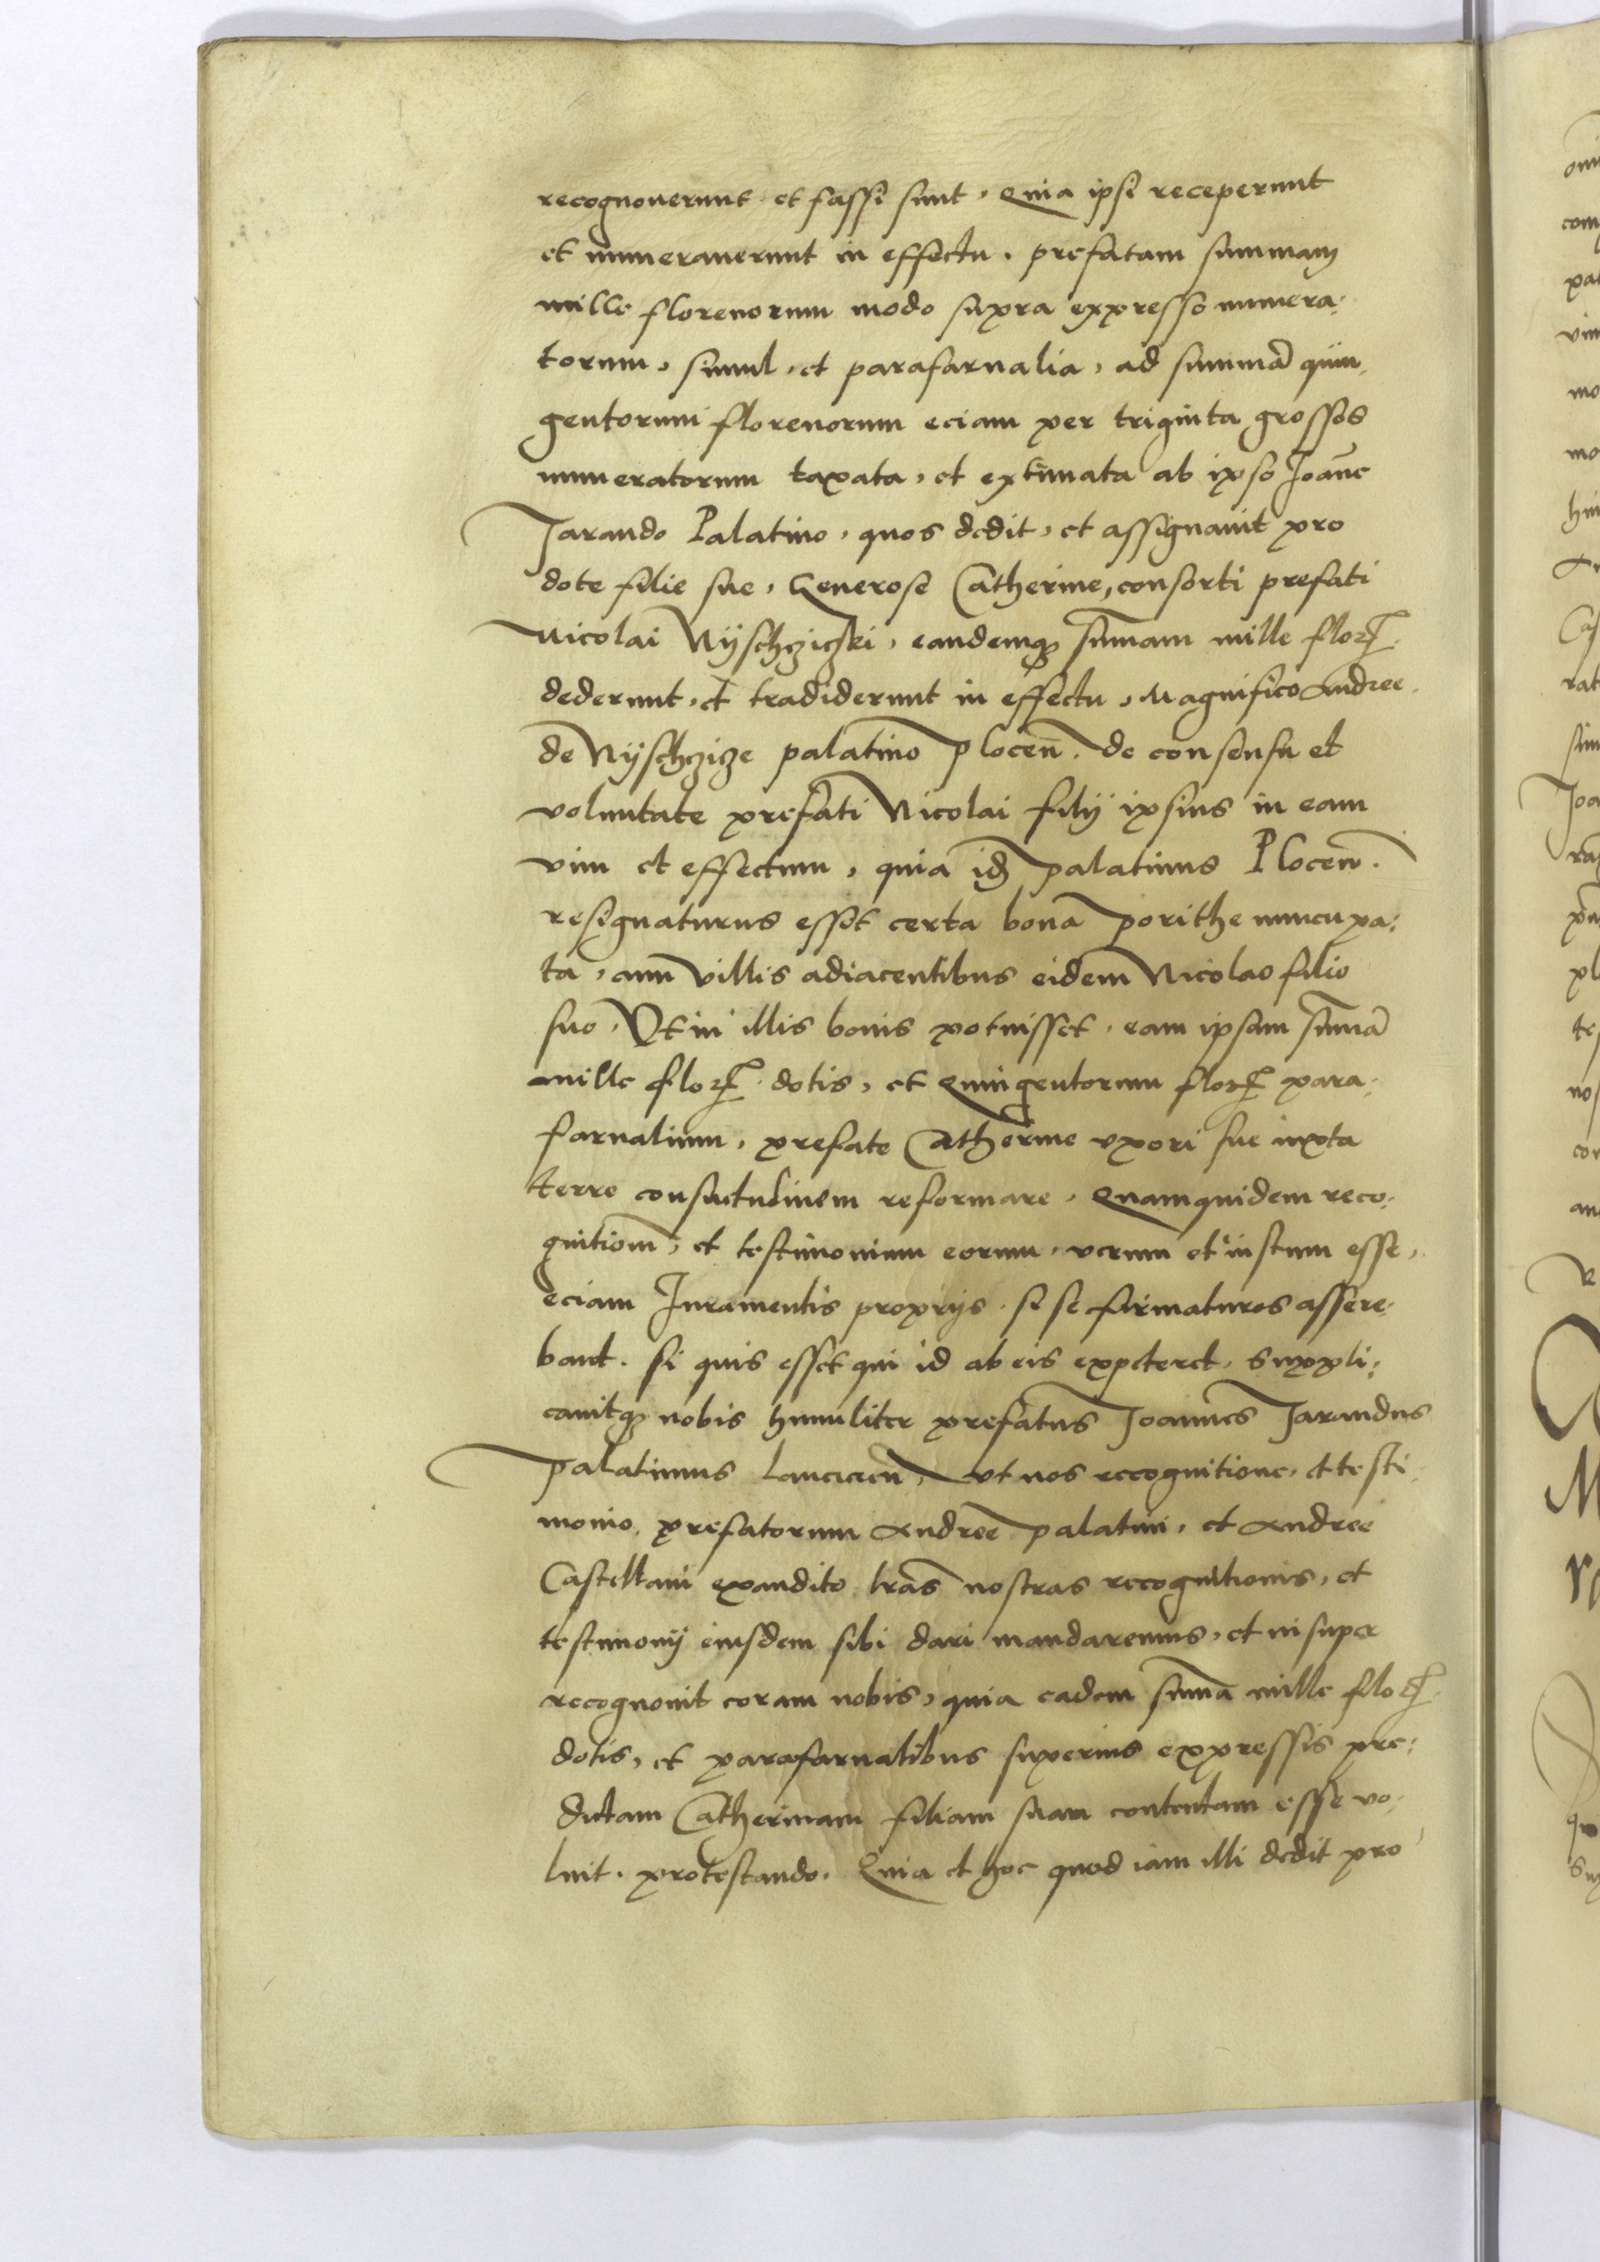 recognouerunt et fassi sunt, Quia ipsi receperunt
et numerauerunt in effectu. prefatam summam
mille florenorum modo supra expresso numera:
torum, simul, et parafarnalia, ad summā quin:
gentorum florenorum eciam per triginta grossos
numeratorum taxata, et extimata ab ipso Joāne
Jarando Palatino, quos dedit, et assignauit pro
dote filie sue, Generose Catherine, consorti prefati
Nicolai Nyschczic͡zki, eandemqꝫ sūmam mille florꝝ.
dederunt, et tradiderunt in effectu, Magnifico Andree
de Nyschczicze palatino Plocen̄. de consensu et
voluntate prefati Nicolai filij ipsius in eam
vim et effectum, quia idē Palatinus Plocen̄.
resignaturus esset certa bona Porithe nuncupa:
ta, cum villis adiacentibus eidem Nicolao filio
suo, Vt in illis bonis potuisset, eam ipsam sūmā
mille florꝝ. dotis, et Quingentorum florꝝ para:
farnalium, prefate Catherine vxori sue iuxta
terre consuetudinem reformare. Quamquidem reco:
gnitionē, et testimonium eorum, verum et iustum esse,
eciam Juramentis proprijs. se se firmaturos assere:
bant. si quis esset qui id ab eis expeteret. Suppli:
cauitqꝫ nobis humiliter prefatus Joannes Jarandus
Palatinus Lancicien̄, vt nos recognitione, et testi:
monio prefatorum Andree palatini, et Andree
Castellani exaudito lrās nostras recognitionis, et
testimonij eiusdem sibi dari mandaremus, et insuper
recognouit coram nobis, quia eadem sūma mille florꝝ
dotis, et parafarnalibus superius expressis pre:
dictam Catherinam filiam suam contentam esse vo:
luit. protestando. Quia et hoc quod iam illi dedit pro